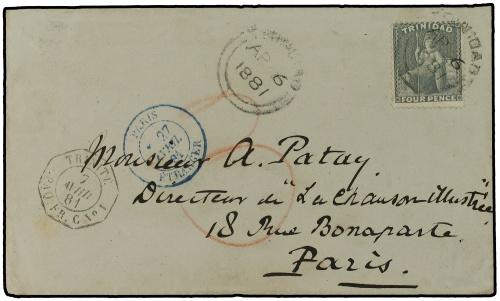 TRINIDAD
AP 6
1881
TRINIDAD
FOUR PENCE
TRINIDAD
AP 6
PARIS
27
ETRANGER
7
AVRIL
81
PAQ. FR. C No 1
Monsieur A. Patay,
Directeur de "La Chanson Illustrée"
18 Rue Bonaparte.
Paris.